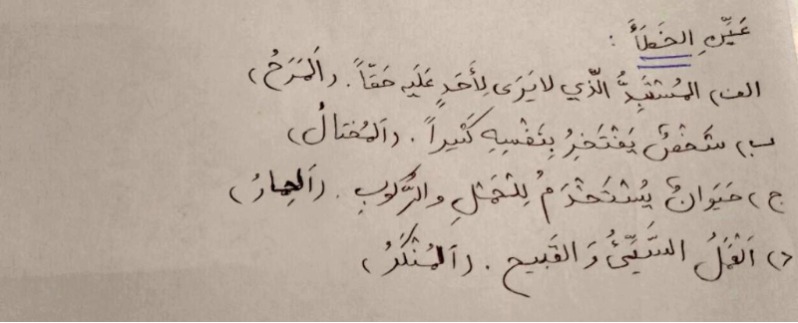 عَيِّنِ الخَطَأَ :
الف) المُسْتَبِدُّ الَّذي لا يَرَی لِأَحَدٍ عَلَيهِ حَقّاً . (اَلمَرَحُ)
ب) شَخْصٌ يَفْتَخِرُ بِنَفْسِهِ كَثيراً . (اَلمُختالُ)
ج) حَيَوانٌ يُسْتَخْدَمُ لِلْحَمْلِ و الرُّكوبِ . (اَلحِمارُ)
د) اَلْعَمَلُ السَّيِّئُ وَ القَبيح . (اَلمُنْكَرُ)